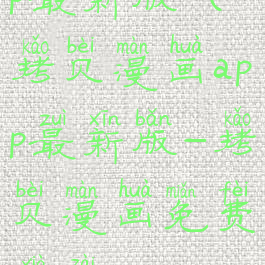 p最新版（
kǎo bèi màn huà
拷贝漫画ap
zuì xīn bǎn kǎo
p最新版-拷
bèi màn huà miǎn fèi
贝漫画免费
xià zài